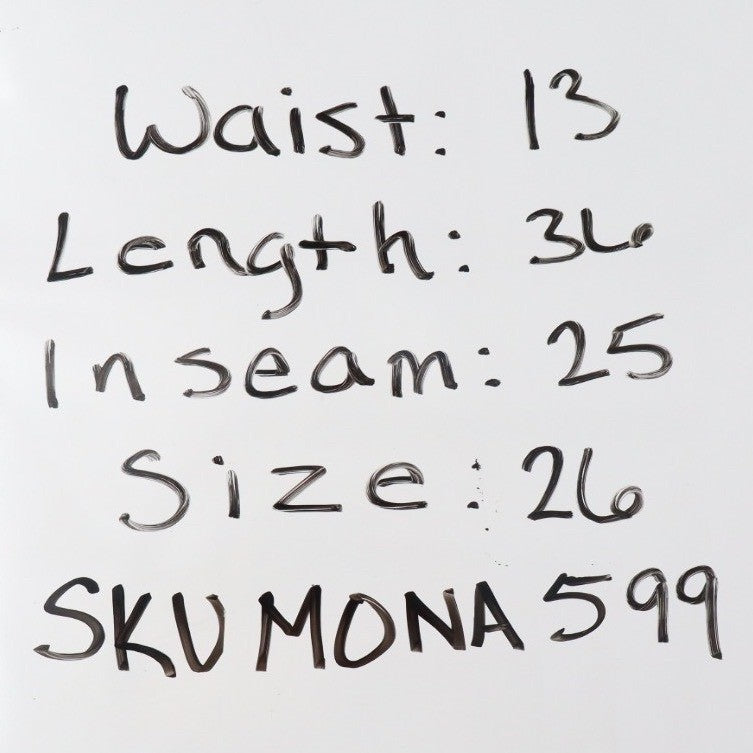 Waist: 13
Length: 36
Inseam: 25
Size: 26
SKU MONA 599